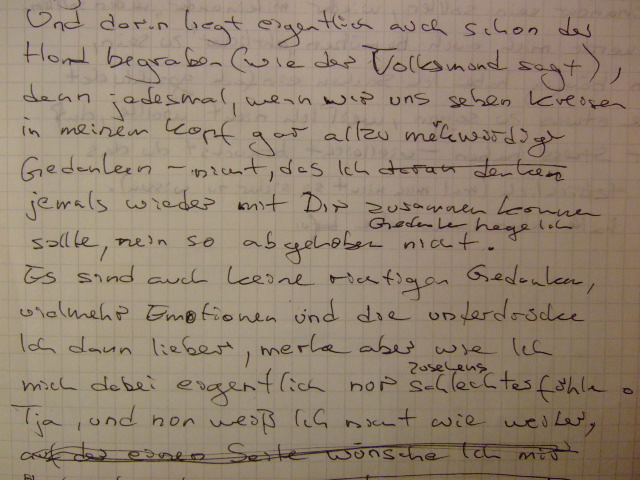 Und darin liegt eigentlich auch schon der
Hund begraben (wie der Volksmund sagt),
denn jedesmal, wenn wir uns sehen kreisen
in meinem Kopf gar allzu merkwürdige
Gedanken – nicht, das Ich daran denken
jemals wieder mit Dir zusammen kommen
sollte, nein so abgehoben Gedanken hege Ich nicht.
Es sind auch keine richtigen Gedanken,
vielmehr Emotionen und die unterdrücke
Ich dann lieber, merke aber wie Ich
mich dabei eigentlich nur zusehens schlechter fühle.
Tja, und nun weiß Ich nicht wie weiter,
auf der einen Seite wünsche Ich mir